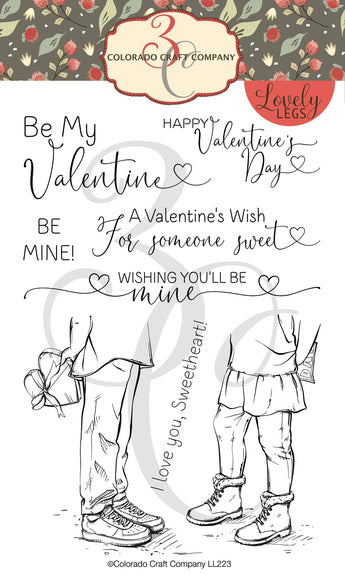 3C
COLORADO CRAFT COMPANY
Lovely
LEGS
Be My
Valentine
HAPPY
Valentine's
Day
BE
MINE!
A Valentine's Wish
For someone sweet
WISHING YOU'LL BE
mine
I love you, Sweetheart!
©Colorado Craft Company LL223